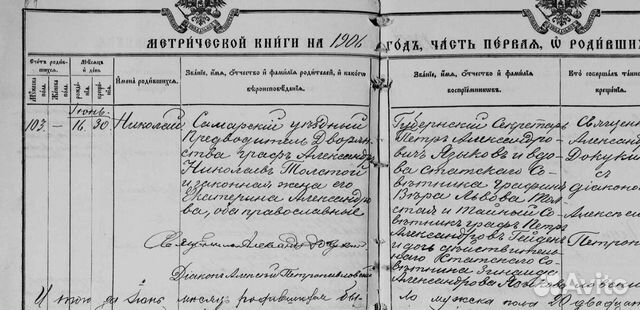 МЕТРИЧЕСКОЙ КНИГИ НА 1906 ГОДЪ, ЧАСТЬ ПЕРВАЯ, Ѡ РОДИВШИХ
Счетъ родив-
шихся.
Мужеска пола.
Женска пола.
Мѣсяцъ
и день
рожде-
нія.
креще-
нія.
Имена родившихся.
Званіе, имя, отчество и фамилія родителей, и какого
вѣроисповѣданія.
Званіе, имя, отчество и фамилія
воспріемниковъ.
Кто совершалъ таинс
крещенія.
Іюнь
103. — 16. 30. Николай
Самарскій уѣздный
Предводитель Дворян-
ства графъ Александръ
Николаевъ Толстой
и законная жена его
Екатерина Александро-
ва, оба православные
Губернскій Секретарь
Петръ Александро-
вичъ Языковъ и вдова
статскаго Со-
вѣтника графиня
Вѣра Львова Тол-
стая и Тайный Со-
вѣтникъ графъ Петръ
Александровъ Гейденъ
и дочь дѣйствитель-
наго Статскаго Со-
вѣтника Зинаида
Александрова
Священ
Александр
Докукин
съ
діаконо
Алексѣе
Петропа
Священникъ Александръ Докукинъ
Діаконъ Алексѣй Петропавловскій
Итого за Іюнь мѣсяцъ родившихся бы-
ло мужска пола 20 двадцат
Avito